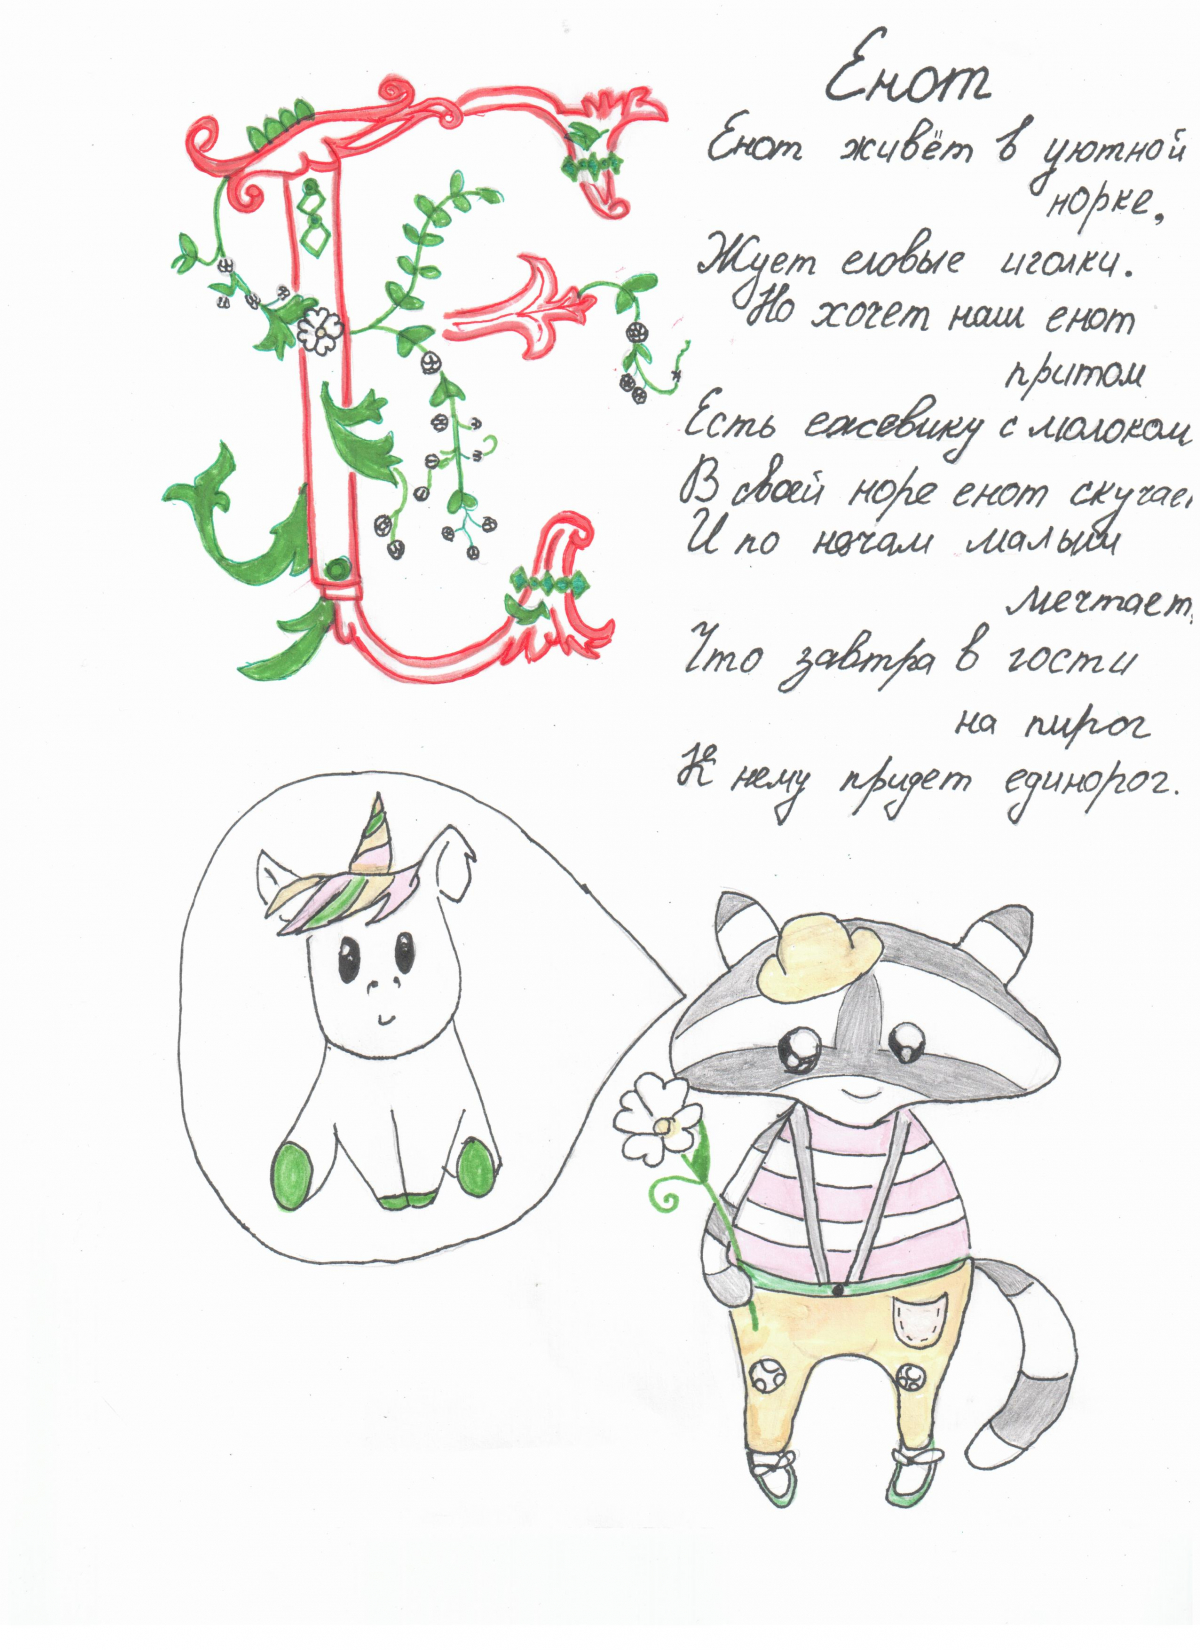 Е
Енот
Енот живёт в уютной
норке,
Жует еловые иголки.
Но хочет наш енот
притом
Есть ежевику с молоком
В своей норе енот скучает
И по ночам малыш
мечтает,
Что завтра в гости
на пирог
К нему придет единорог.